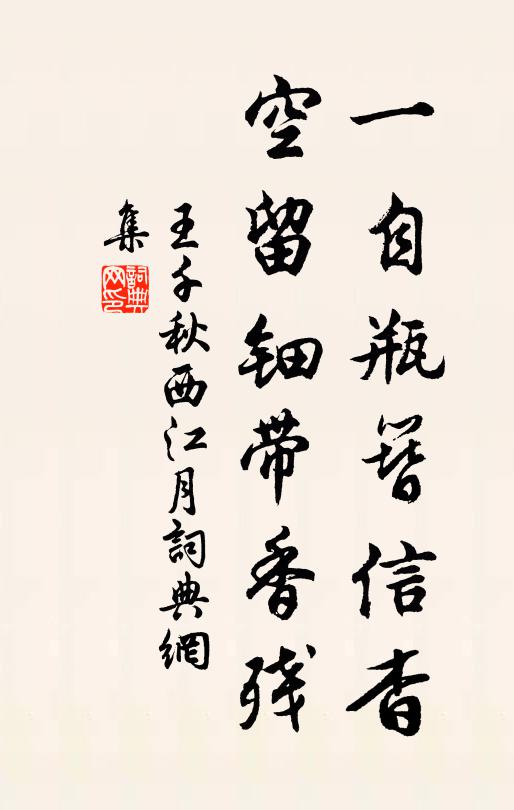 一自瓶簪信杳
空留钿带香残
王千秋西江月詞典網
集
詞典
网印